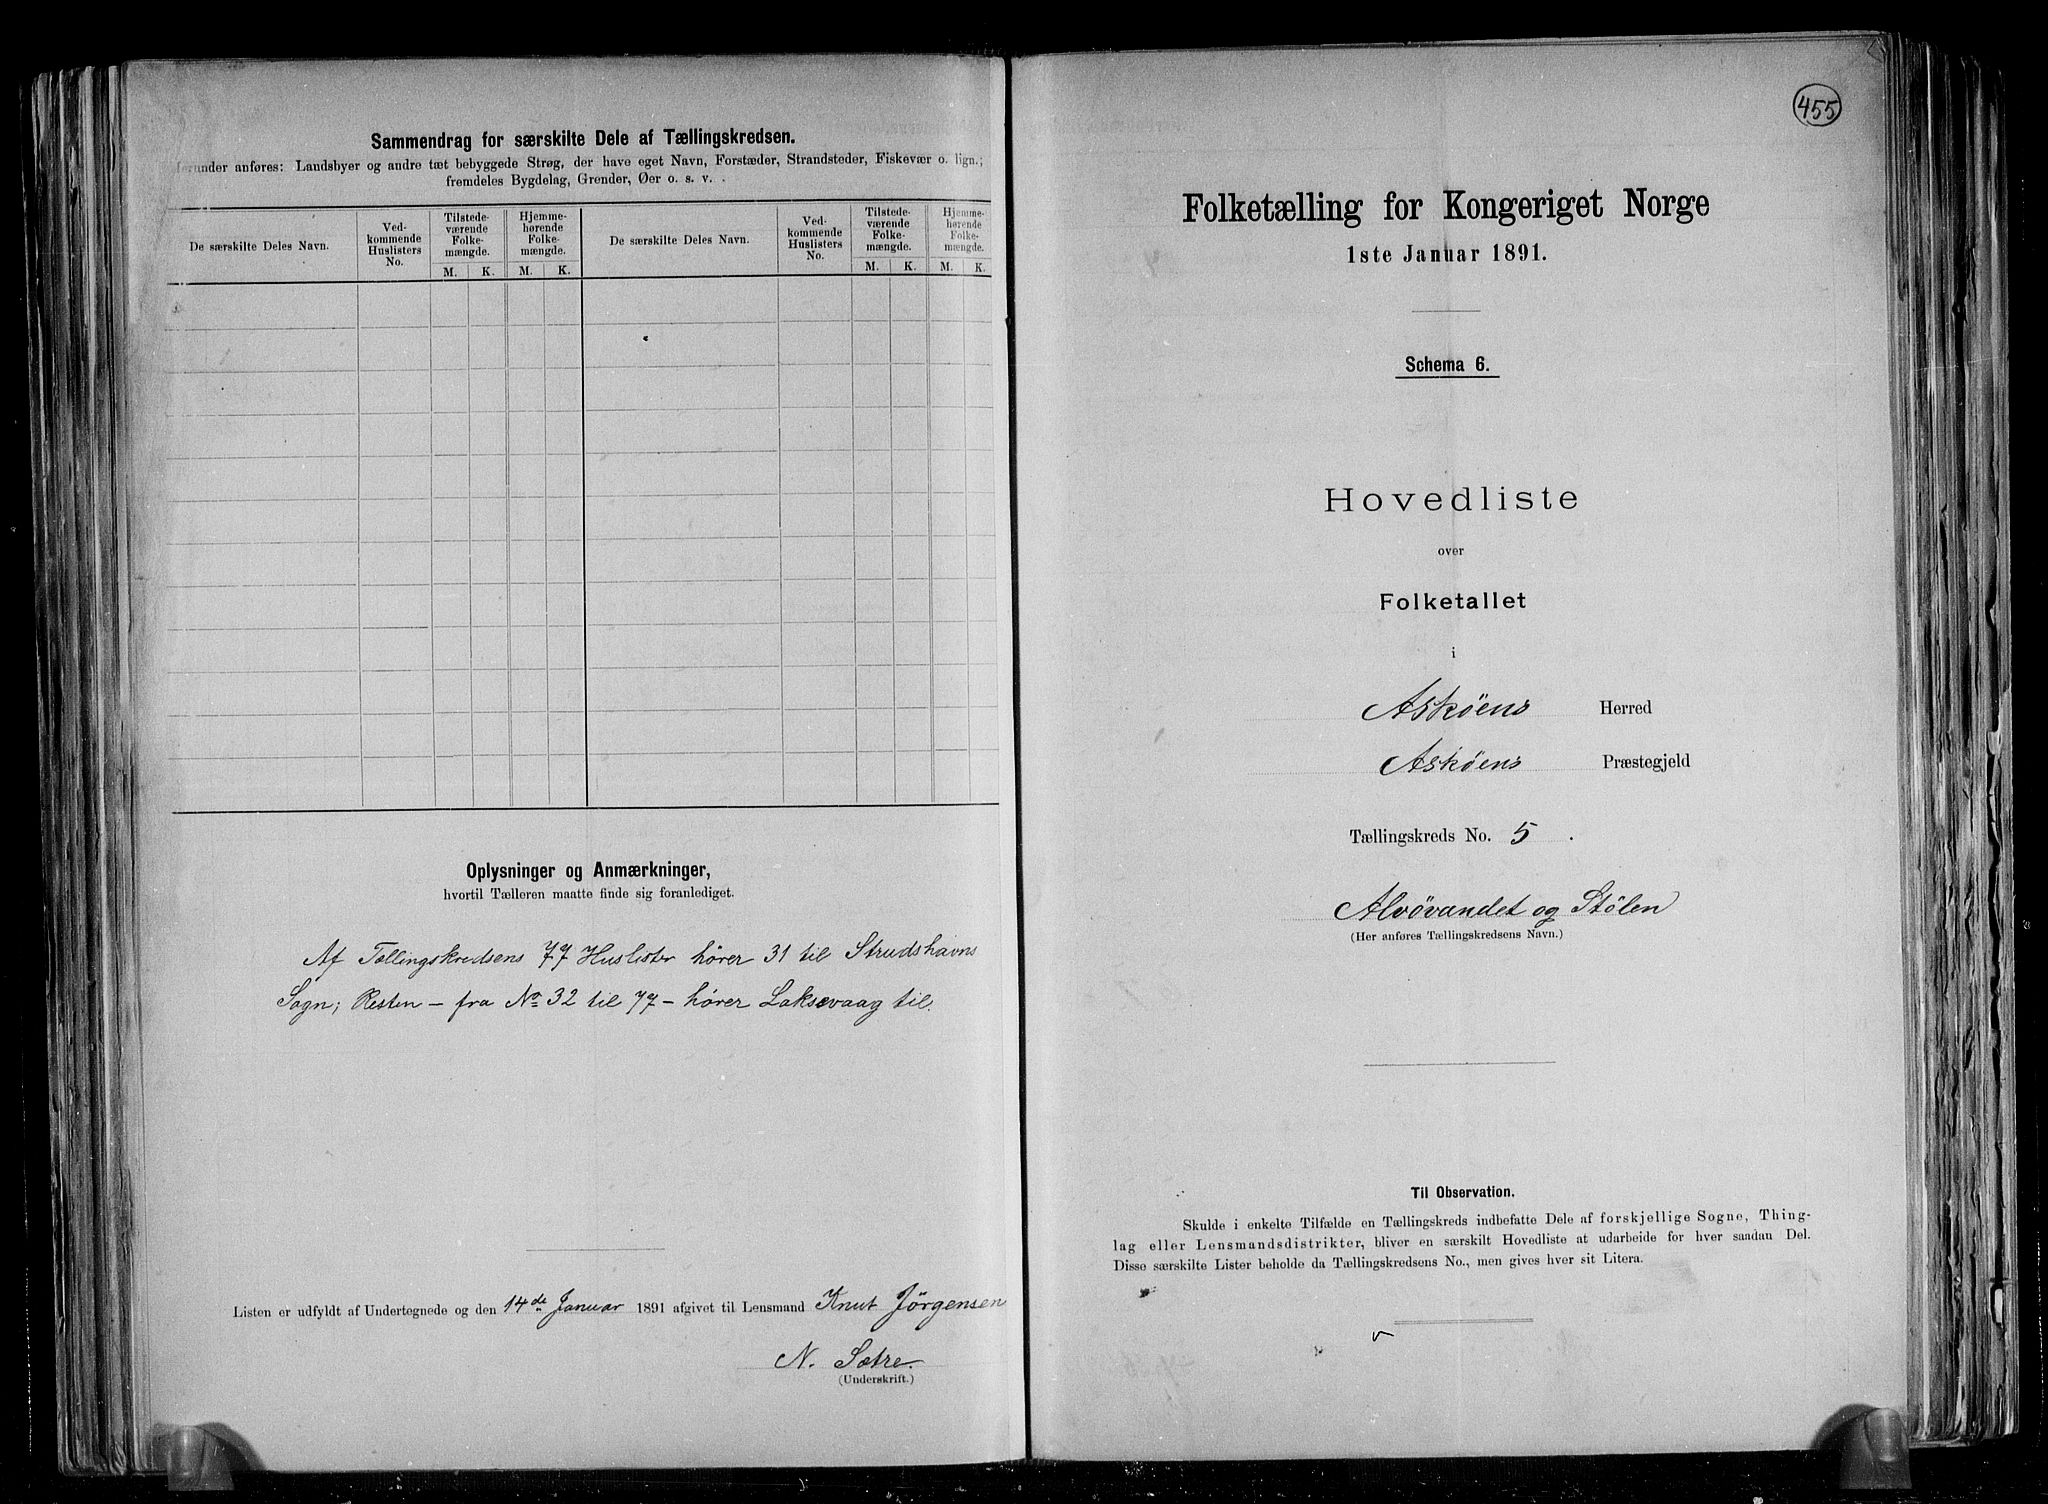 Sammendrag for særskilte Dele af Tællingskredsen.
Herunder anføres: Landsbyer og andre tæt bebyggede Strøg, der have eget Navn, Forstæder, Strandsteder, Fiskevær o. lign.;
fremdeles Bygdelag, Grender, Øer o. s. v.
De særskilte Deles Navn.
Ved-
kommende
Huslisters
No.
Tilstede-
værende
Folke-
mængde.
M. K.
Hjemme-
hørende
Folke-
mængde.
M. K.
De særskilte Deles Navn.
Ved-
kommende
Huslisters
No.
Tilstede-
værende
Folke-
mængde.
M. K.
Hjemme-
hørende
Folke-
mængde.
M. K.
Oplysninger og Anmærkninger,
hvortil Tælleren maatte finde sig foranlediget.
Af Tællingskredsens 77 Huslister hører 31 til Strudshavns
Sogn; Resten – fra No 32 til 77 – hører Laksevaag til.
Listen er udfyldt af Undertegnede og den 14de Januar 1891 afgivet til Lensmand Knut Jörgensen
N. Sætre.
(Underskrift.)
455
Folketælling for Kongeriget Norge
1ste Januar 1891.
Schema 6.
Hovedliste
over
Folketallet
i
Asköens Herred
Asköens Præstegjeld
Tællingskreds No. 5.
Alvövandet og Stölen
(Her anføres Tællingskredsens Navn.)
Til Observation.
Skulde i enkelte Tilfælde en Tællingskreds indbefatte Dele af forskjellige Sogne, Thing-
lag eller Lensmandsdistrikter, bliver en særskilt Hovedliste at udarbeide for hver saadan Del.
Disse særskilte Lister beholde da Tællingskredsens No., men gives hver sit Litera.